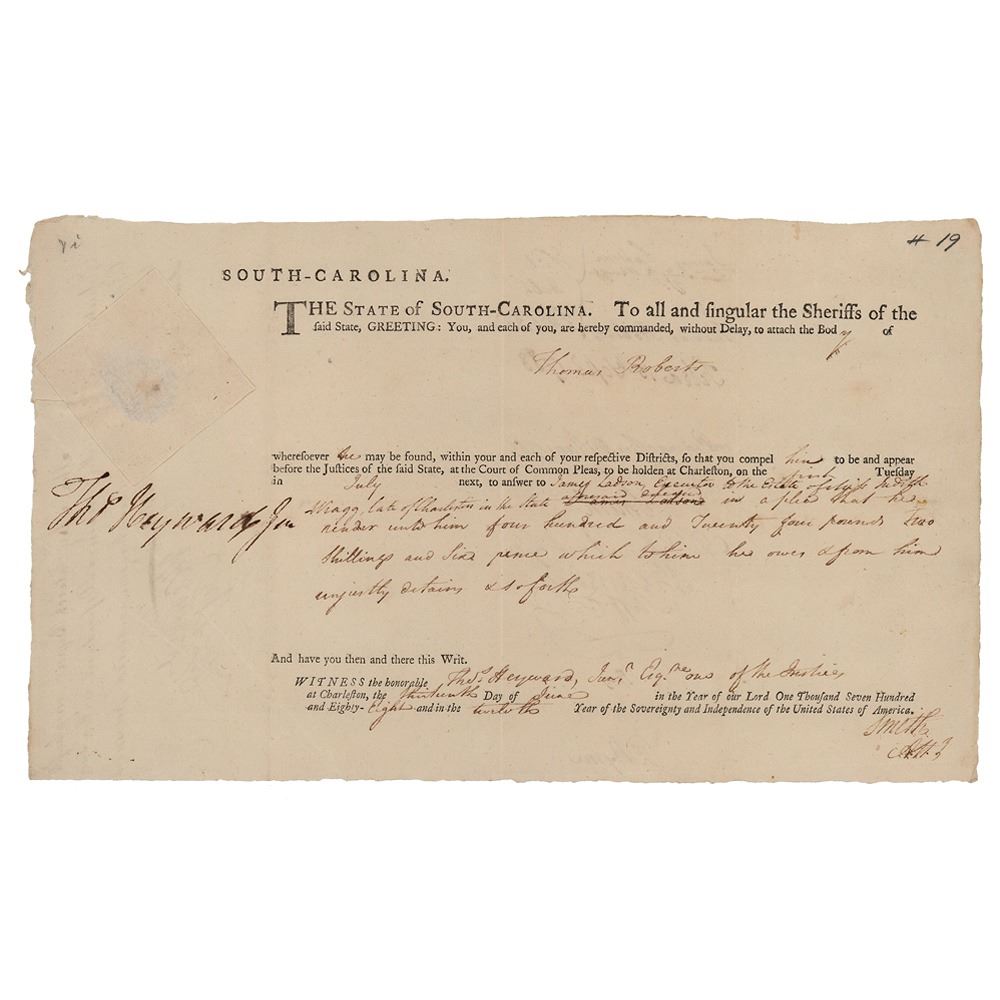 # 19
SOUTH-CAROLINA.
THE STATE of SOUTH-CAROLINA. To all and singular the Sheriffs of the
said State, GREETING: You, and each of you, are hereby commanded, without Delay, to attach the Body of
Thomas Roberts
wheresoever he may be found, within your and each of your respective Districts, so that you compel him to be and appear
before the Justices of the said State, at the Court of Common Pleas, to be holden at Charleston, on the first Tuesday
in July next, to answer to James Ladson, Executor to the Estate of Miss Judith
Wragg, late of Charleston in the State aforesaid deceased in a plea that he
render unto him four hundred and Twenty four pounds Two
Shillings and Six pence which to him he owes & from him
unjustly detains & so forth
Thos Heyward Jun
And have you then and there this Writ.
WITNESS the honorable Thos. Heyward, Junr. Esqre one of the Justices
at Charleston, the thirteenth Day of June in the Year of our Lord One Thousand Seven Hundred
and Eighty-Eight and in the twelvth Year of the Sovereignty and Independence of the United States of America.
Smith
Atty